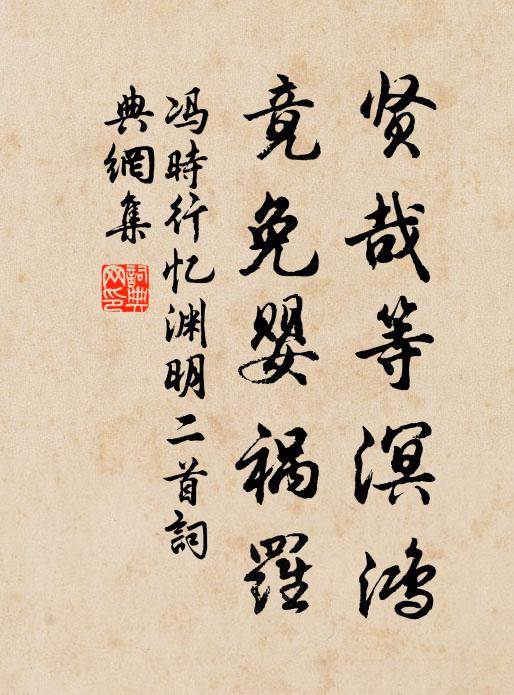 贤哉等溟鸿
竟免婴祸羅
冯時行忆渊明二首詞
典網集
詞典
网印